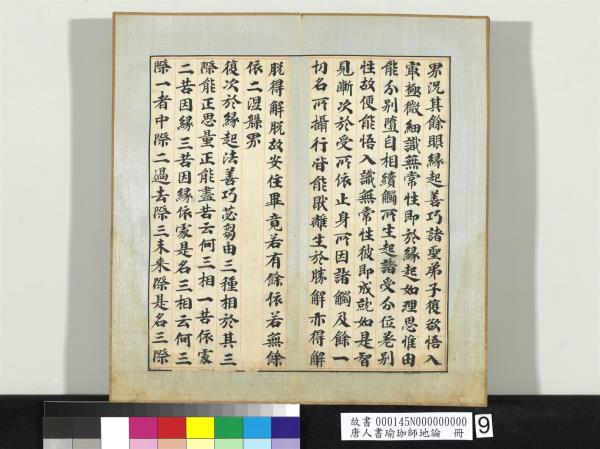 界況其餘眼緣起善巧諸聖弟子復欲悟入
寂極微細識無常性即於緣起如理思惟由
能分別墮自相續觸所生起諸受分位差別
性故便能悟入識無常性彼即成就如是智
見漸次於受所依止身所因諸觸及餘一
切名所攝行皆能猒離生於勝解亦得解
脫得解脫故安住畢竟若有餘依若無餘
依二涅槃界
復次於緣起法善巧苾芻由三種相於其三
際能正思量正能盡苦云何三相一苦依處
二苦因緣三苦因緣依處是名三相云何三
際一者中際二過去際三未來際是名三際
故書 000145N000000000
唐人書瑜珈師地論 冊
9